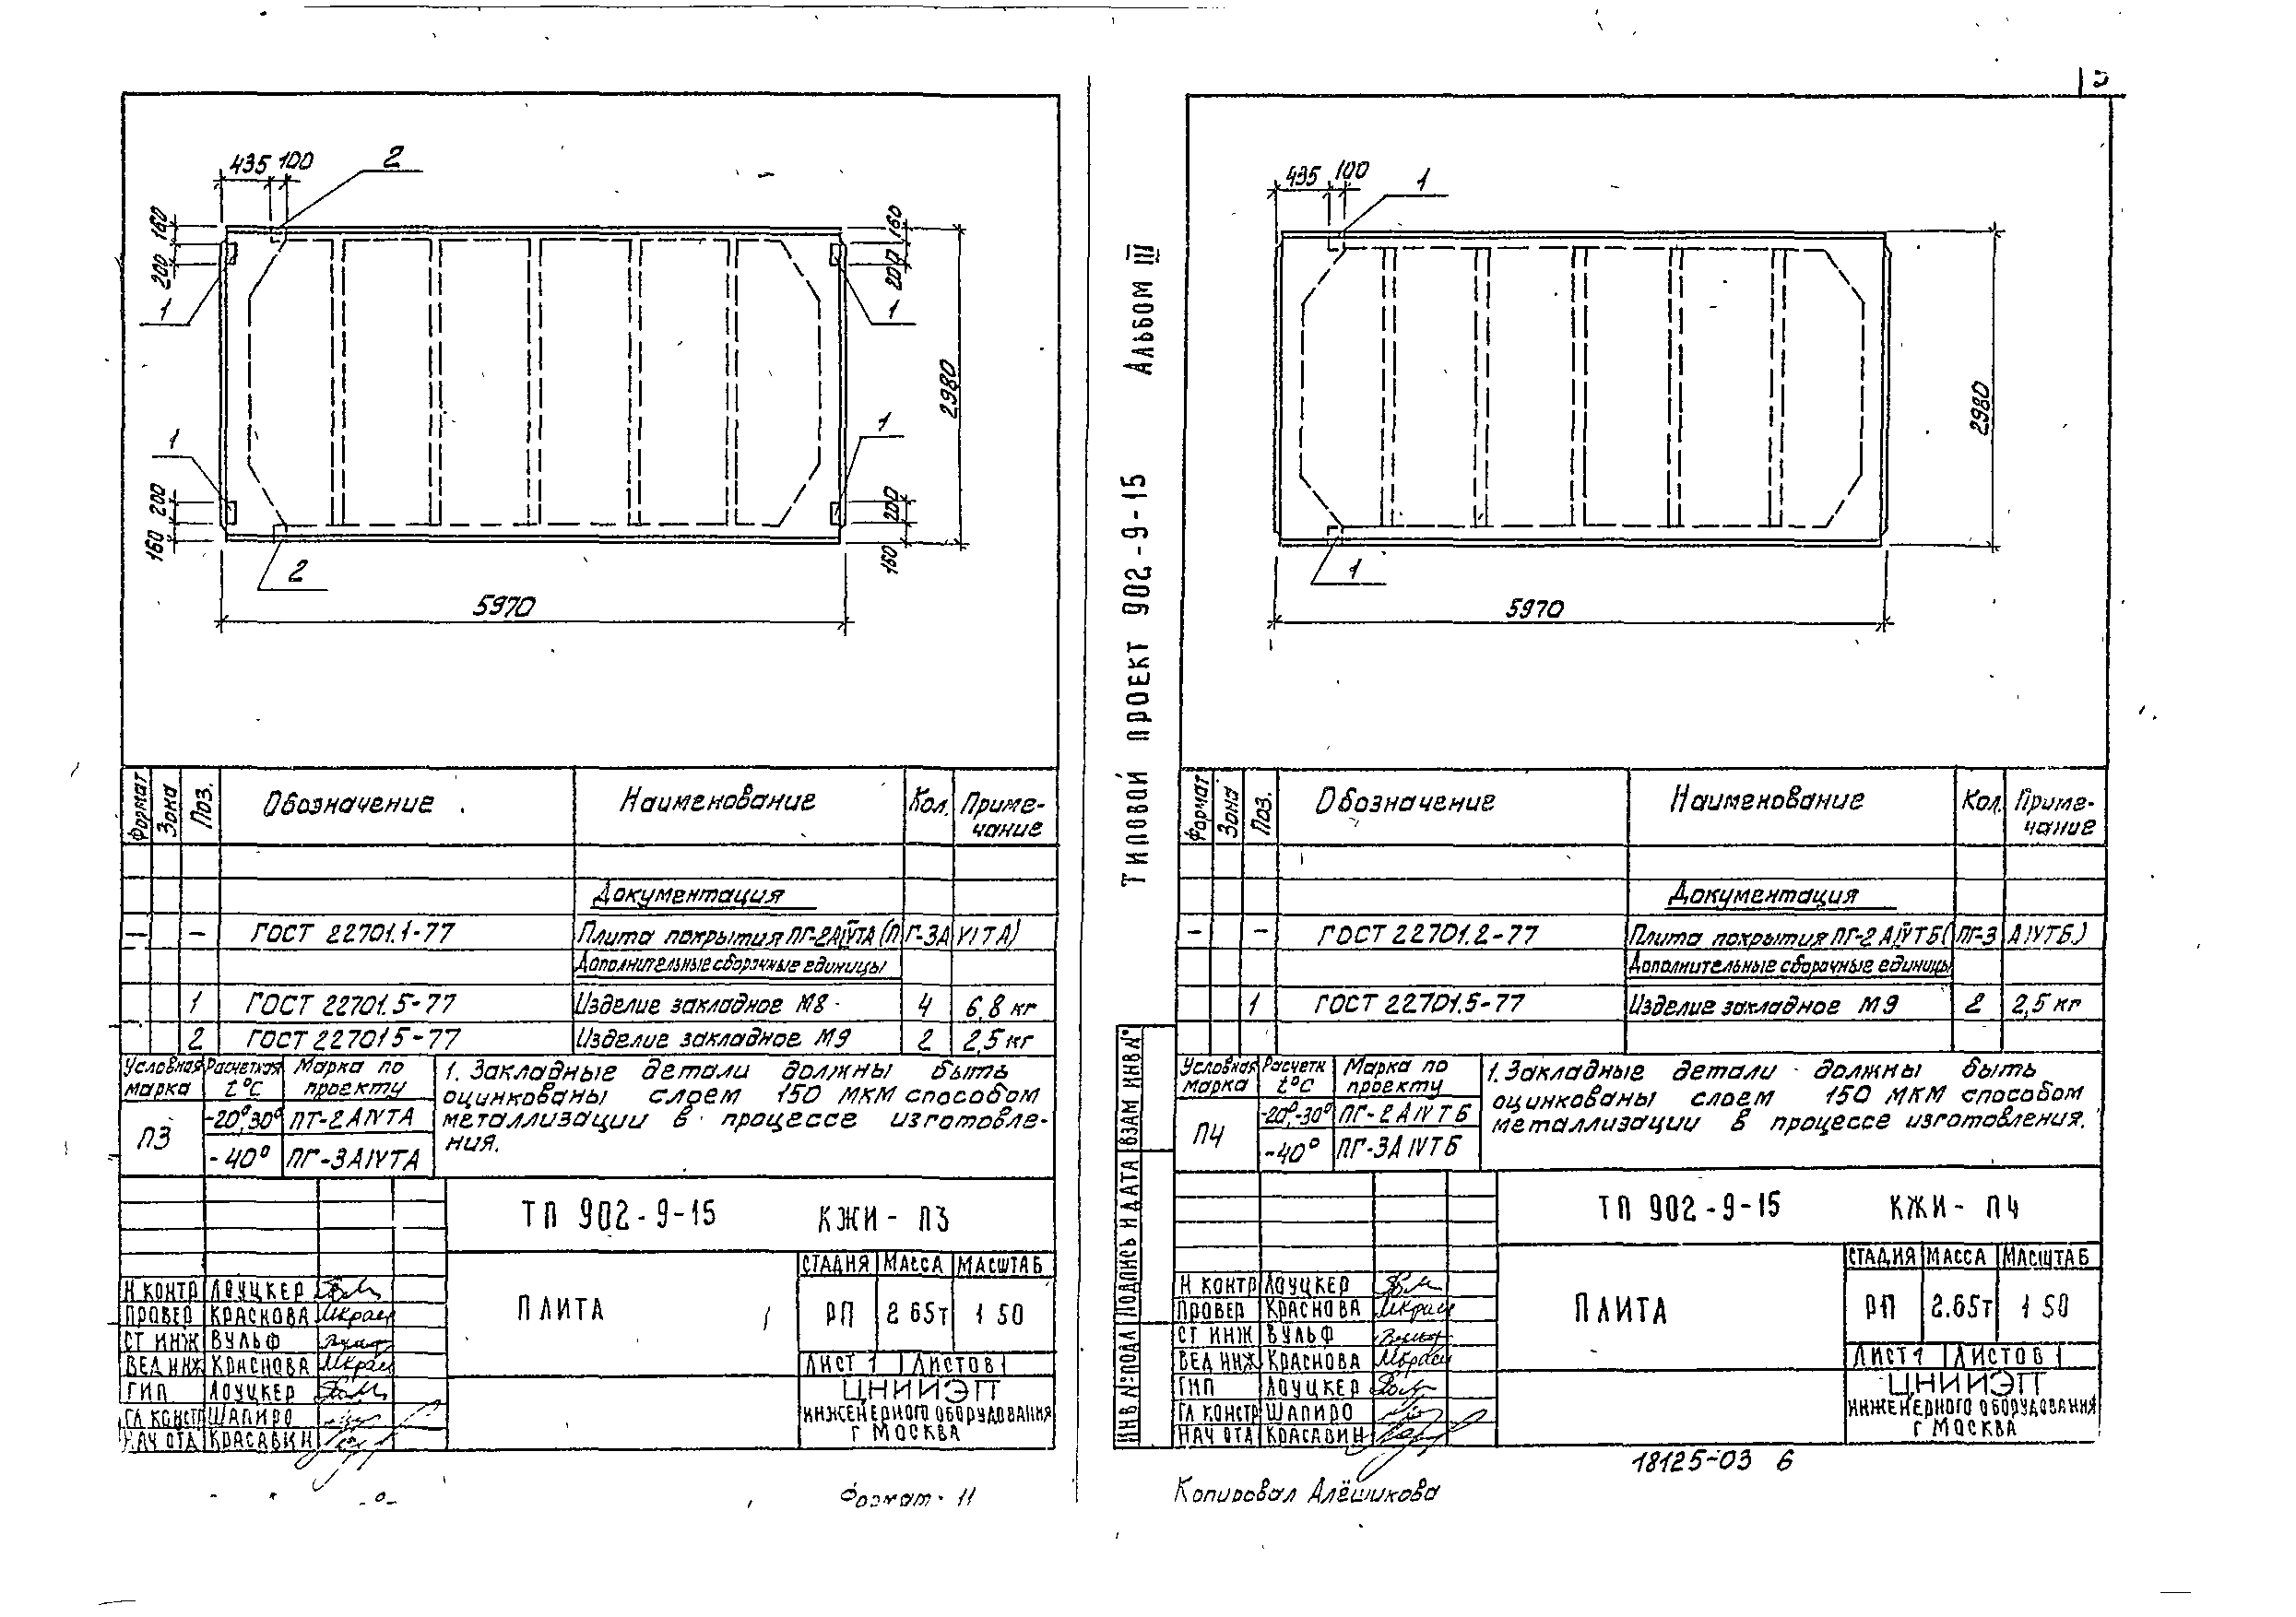 435 100 2
160
200
1
160
200
1
2980
1
1
200
160
200
160
2
5970
Формат Зона Поз. Обозначение Наименование Кол. Приме-
чание
Документация
— – ГОСТ 22701.1-77 Плита покрытия ПГ-2АIVТА (ПГ-3АVIТА)
Дополнительные сборочные единицы
1 ГОСТ 22701.5-77 Изделие закладное М8 4 6,8 кг
2 ГОСТ 227015-77 Изделие закладное М9 2 2,5 кг
Условная марка Расчетная t°C Марка по проекту
П3 -20°,30° ПТ-2АIVТА
-40° ПГ-3АIVТА
1. Закладные детали должны быть
оцинкованы слоем 150 мкм способом
металлизации в процессе изготовле-
ния.
ТП 902-9-15 КЖИ- П3
ПЛИТА
СТАДИЯ МАССА МАСШТАБ
РП 2 65т 1 50
ЛИСТ 1 ЛИСТОВ 1
Н КОНТР ЛОУЦКЕР
ПРОВЕР КРАСНОВА
СТ ИНЖ ВУЛЬФ
ВЕД ИНЖ КРАСНОВА
ГИП ЛОУЦКЕР
ГЛ КОНСТР ШАПИРО
НАЧ ОТД КРАСАВИН
ЦНИИЭП
ИНЖЕНЕРНОГО ОБОРУДОВАНИЯ
Г МОСКВА
Формат 11
ТИПОВОЙ ПРОЕКТ 902-9-15 АЛЬБОМ III
435 100 1
2980
1
5970
Формат Зона Поз. Обозначение Наименование Кол. Приме-
чание
Документация
– – ГОСТ 22701.2-77 Плита покрытия ПГ-2 АIVТБ (ПГ-3 АIVТБ)
Дополнительные сборочные единицы
1 ГОСТ 22701.5-77 Изделие закладное М9 2 2,5 кг
Условная марка Расчетн t°C Марка по проекту
П4 -20°,-30° ПГ-2АIVТБ
-40° ПГ-3АIVТБ
1. Закладные детали должны быть
оцинкованы слоем 150 мкм способом
металлизации в процессе изготовления.
ТП 902-9-15 КЖИ- П4
ПЛИТА
СТАДИЯ МАССА МАСШТАБ
РП 2.65т 1 50
ЛИСТ 1 ЛИСТОВ 1
Н КОНТР ЛОУЦКЕР
ПРОВЕР КРАСНОВА
СТ ИНЖ ВУЛЬФ
ВЕД ИНЖ КРАСНОВА
ГИП ЛОУЦКЕР
ГЛ КОНСТР ШАПИРО
НАЧ ОТД КРАСАВИН
ЦНИИЭП
ИНЖЕНЕРНОГО ОБОРУДОВАНИЯ
Г МОСКВА
ИНВ № ПОДЛ ПОДПИСЬ И ДАТА ВЗАМ ИНВ №
18125-03 6
Копировал Алёшикова